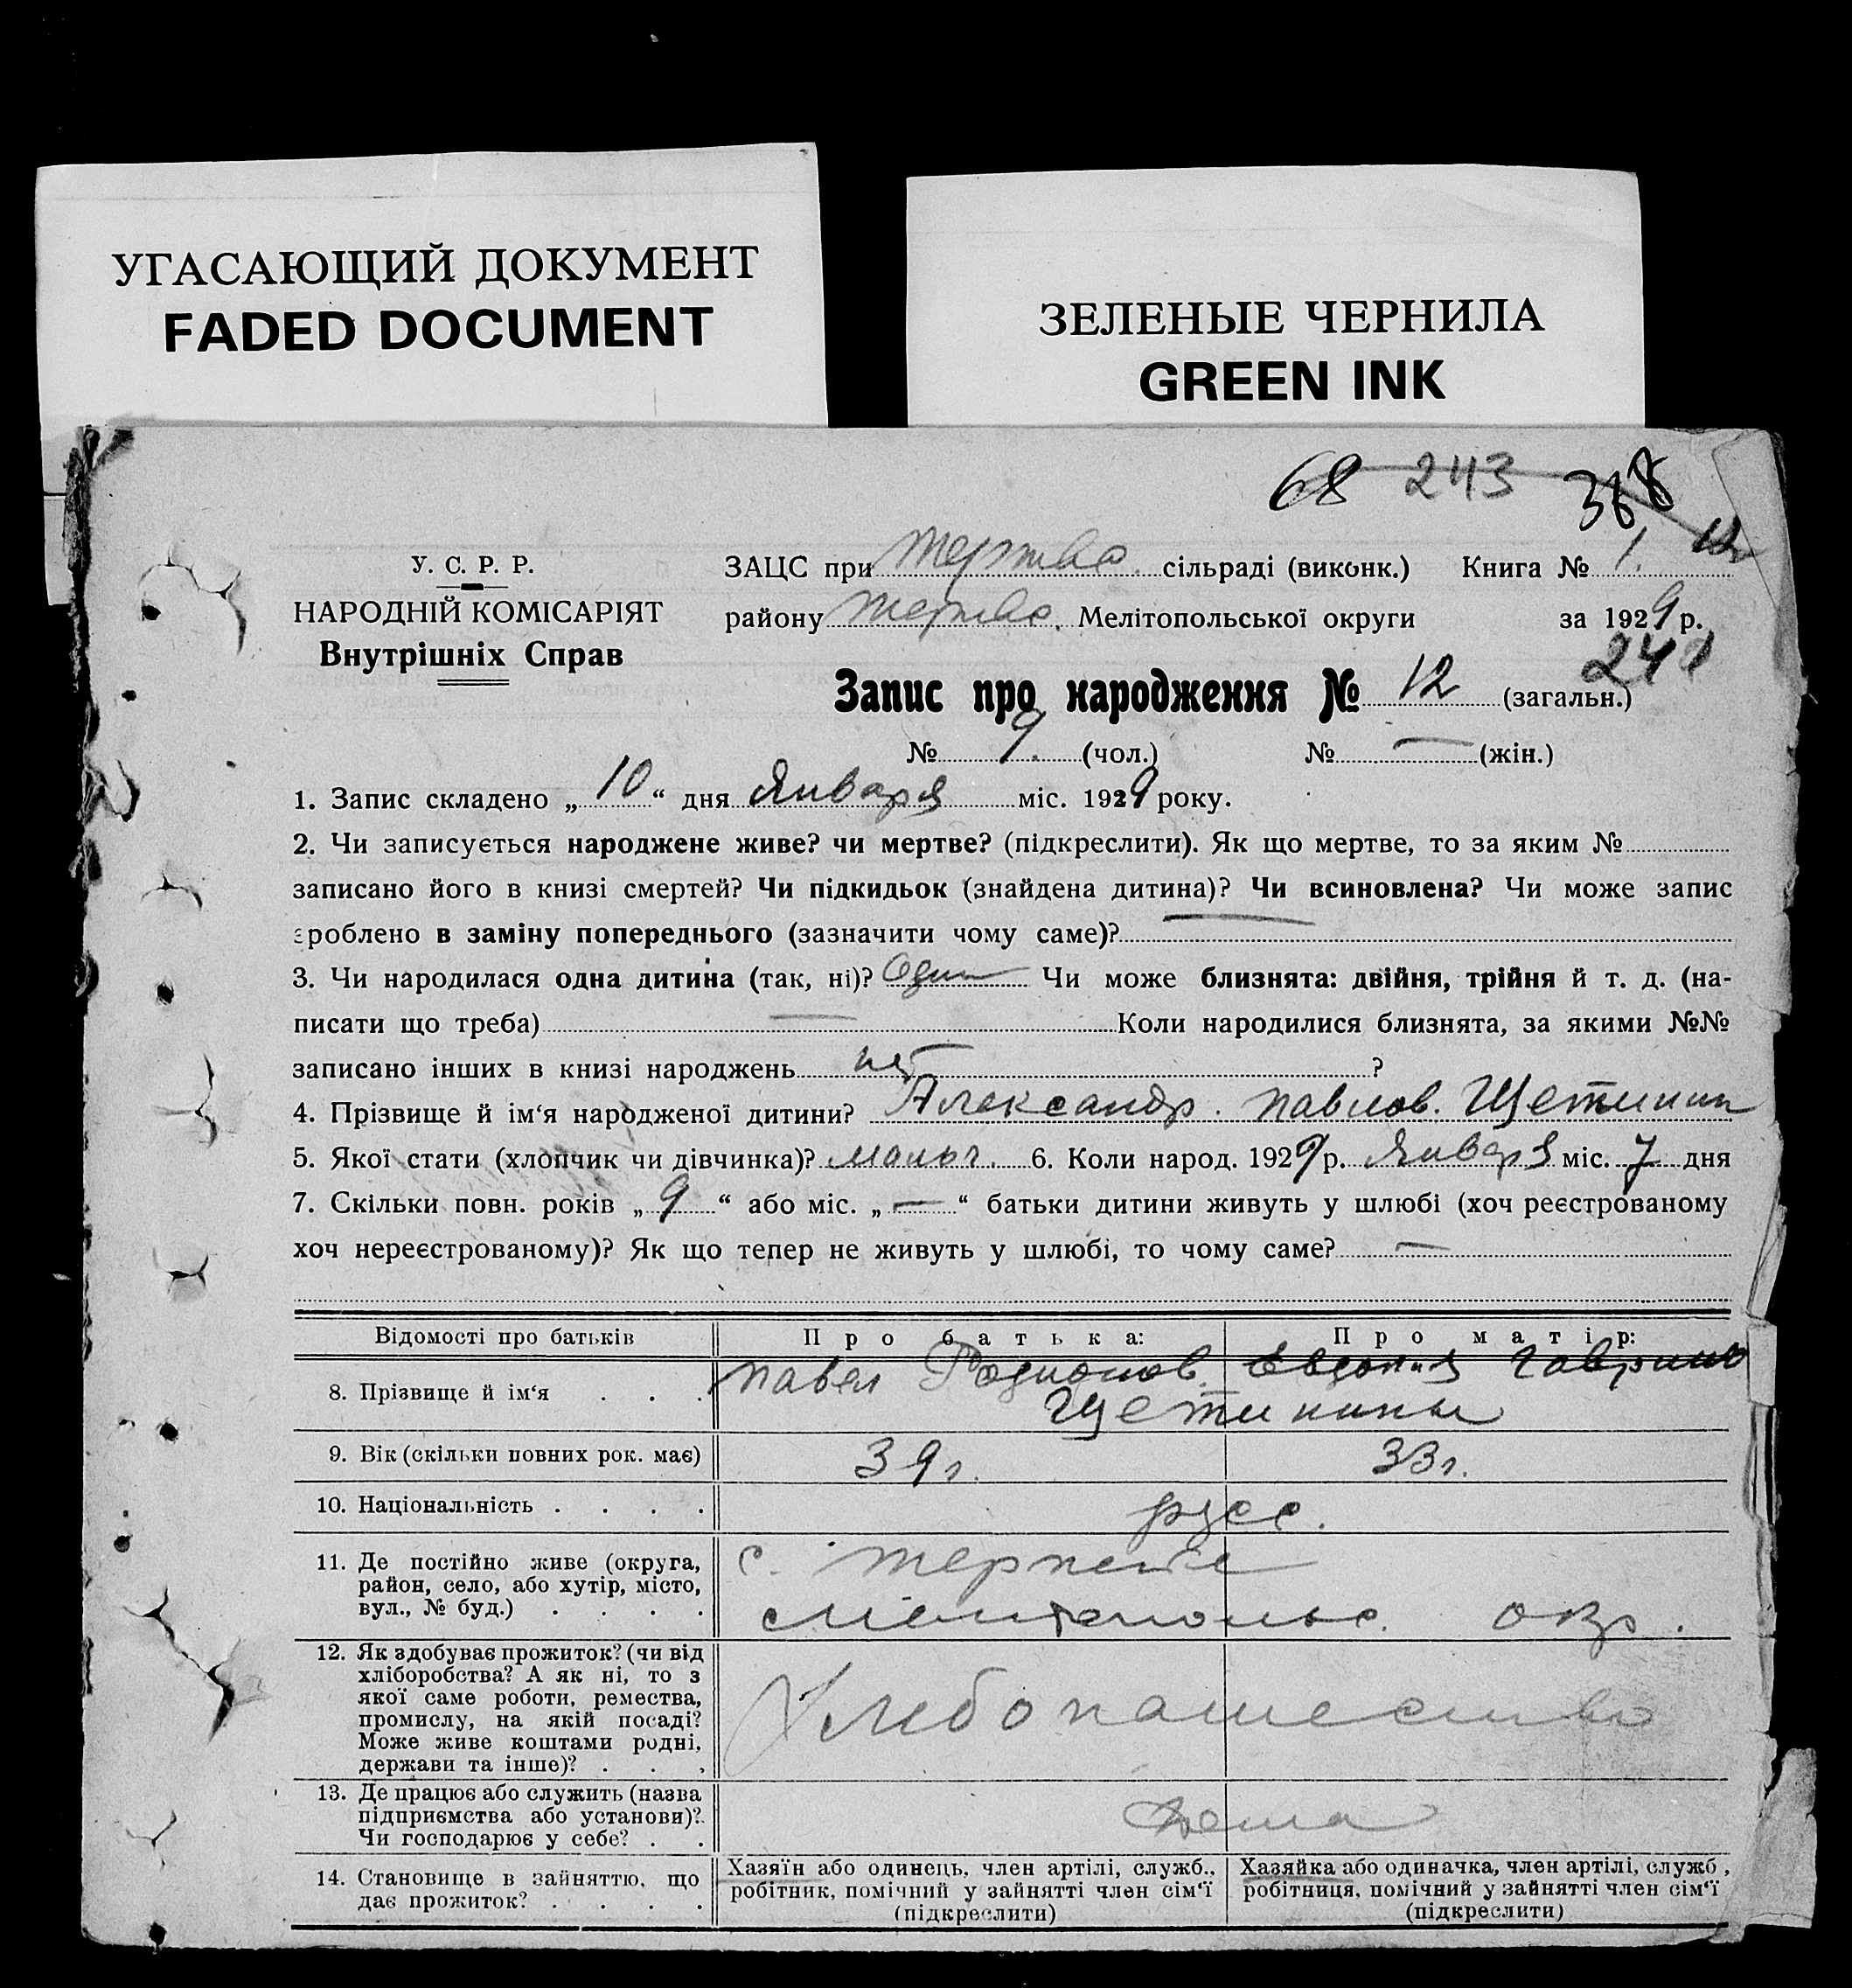 УГАСАЮЩИЙ ДОКУМЕНТ
FADED DOCUMENT
ЗЕЛЕНЫЕ ЧЕРНИЛА
GREEN INK
68 243 368
У. С. Р. Р.
НАРОДНІЙ КОМІСАРІЯТ
Внутрішніх Справ
ЗАЦС при сільраді (виконк.) Книга № 1.
району Мелітопольської округи за 1929 р.
Запис про народження № 12 (загальн.)
№ 9. (чол.) № — (жін.)
1. Запис складено „ 10 “ дня Января міс. 1929 року.
2. Чи записується народжене живе? чи мертве? (підкреслити). Як що мертве, то за яким №
записано його в книзі смертей? Чи підкидьок (знайдена дитина)? Чи всиновлена? Чи може запис
зроблено в заміну попереднього (зазначити чому саме)? —
3. Чи народилася одна дитина (так, ні)? Один Чи може близнята: двійня, трійня й т. д. (на-
писати що треба) — Коли народилися близнята, за якими №№
записано інших в книзі народжень нет ?
4. Прізвище й ім‘я народженої дитини? Александр. Павлов. Щетинин
5. Якої стати (хлопчик чи дівчинка)? мальч. 6. Коли народ. 1929 р. Января міс. 7 дня
7. Скільки повн. років „ 9 “ або міс. „ — “ батьки дитини живуть у шлюбі (хоч реєстрованому
хоч нереєстрованому)? Як що тепер не живуть у шлюбі, то чому саме? —
Відомості про батьків Про батька: Про матір:
8. Прізвище й ім‘я Павел Родионов. Евдокия
Щетинины
9. Вік (скільки повних рок. має) 39 г. 33 г.
10. Національність русс.
11. Де постійно живе (округа, район, село, або хутір, місто, вул., № буд.) с. Терпение
Мелитопольс. окр.
12. Як здобуває прожиток? (чи від
хліборобства? А як ні, то з
якої саме роботи, ремества,
промислу, на якій посаді?
Може живе коштами родні,
держави та інше)? Хлебопашество
13. Де працює або служить (назва
підприємства або установи)?
Чи господарює у себе? Дома
14. Становище в зайняттю, що
дає прожиток?
Хазяїн або одинець, член артілі, служб.,
робітник, помічний у зайнятті член сім‘ї
(підкреслити)
Хазяйка або одиначка, член артілі, служб,
робітниця, помічний у зайнятті член сім‘ї
(підкреслити)